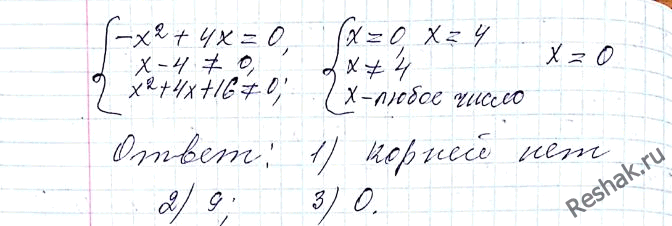 {-x² + 4x = 0, {x = 0, x = 4
x - 4 ≠ 0, x ≠ 4 x = 0
x² + 4x + 16 ≠ 0; x - любое число
Ответ: 1) корней нет
2) 9; 3) 0.
Reshak.ru